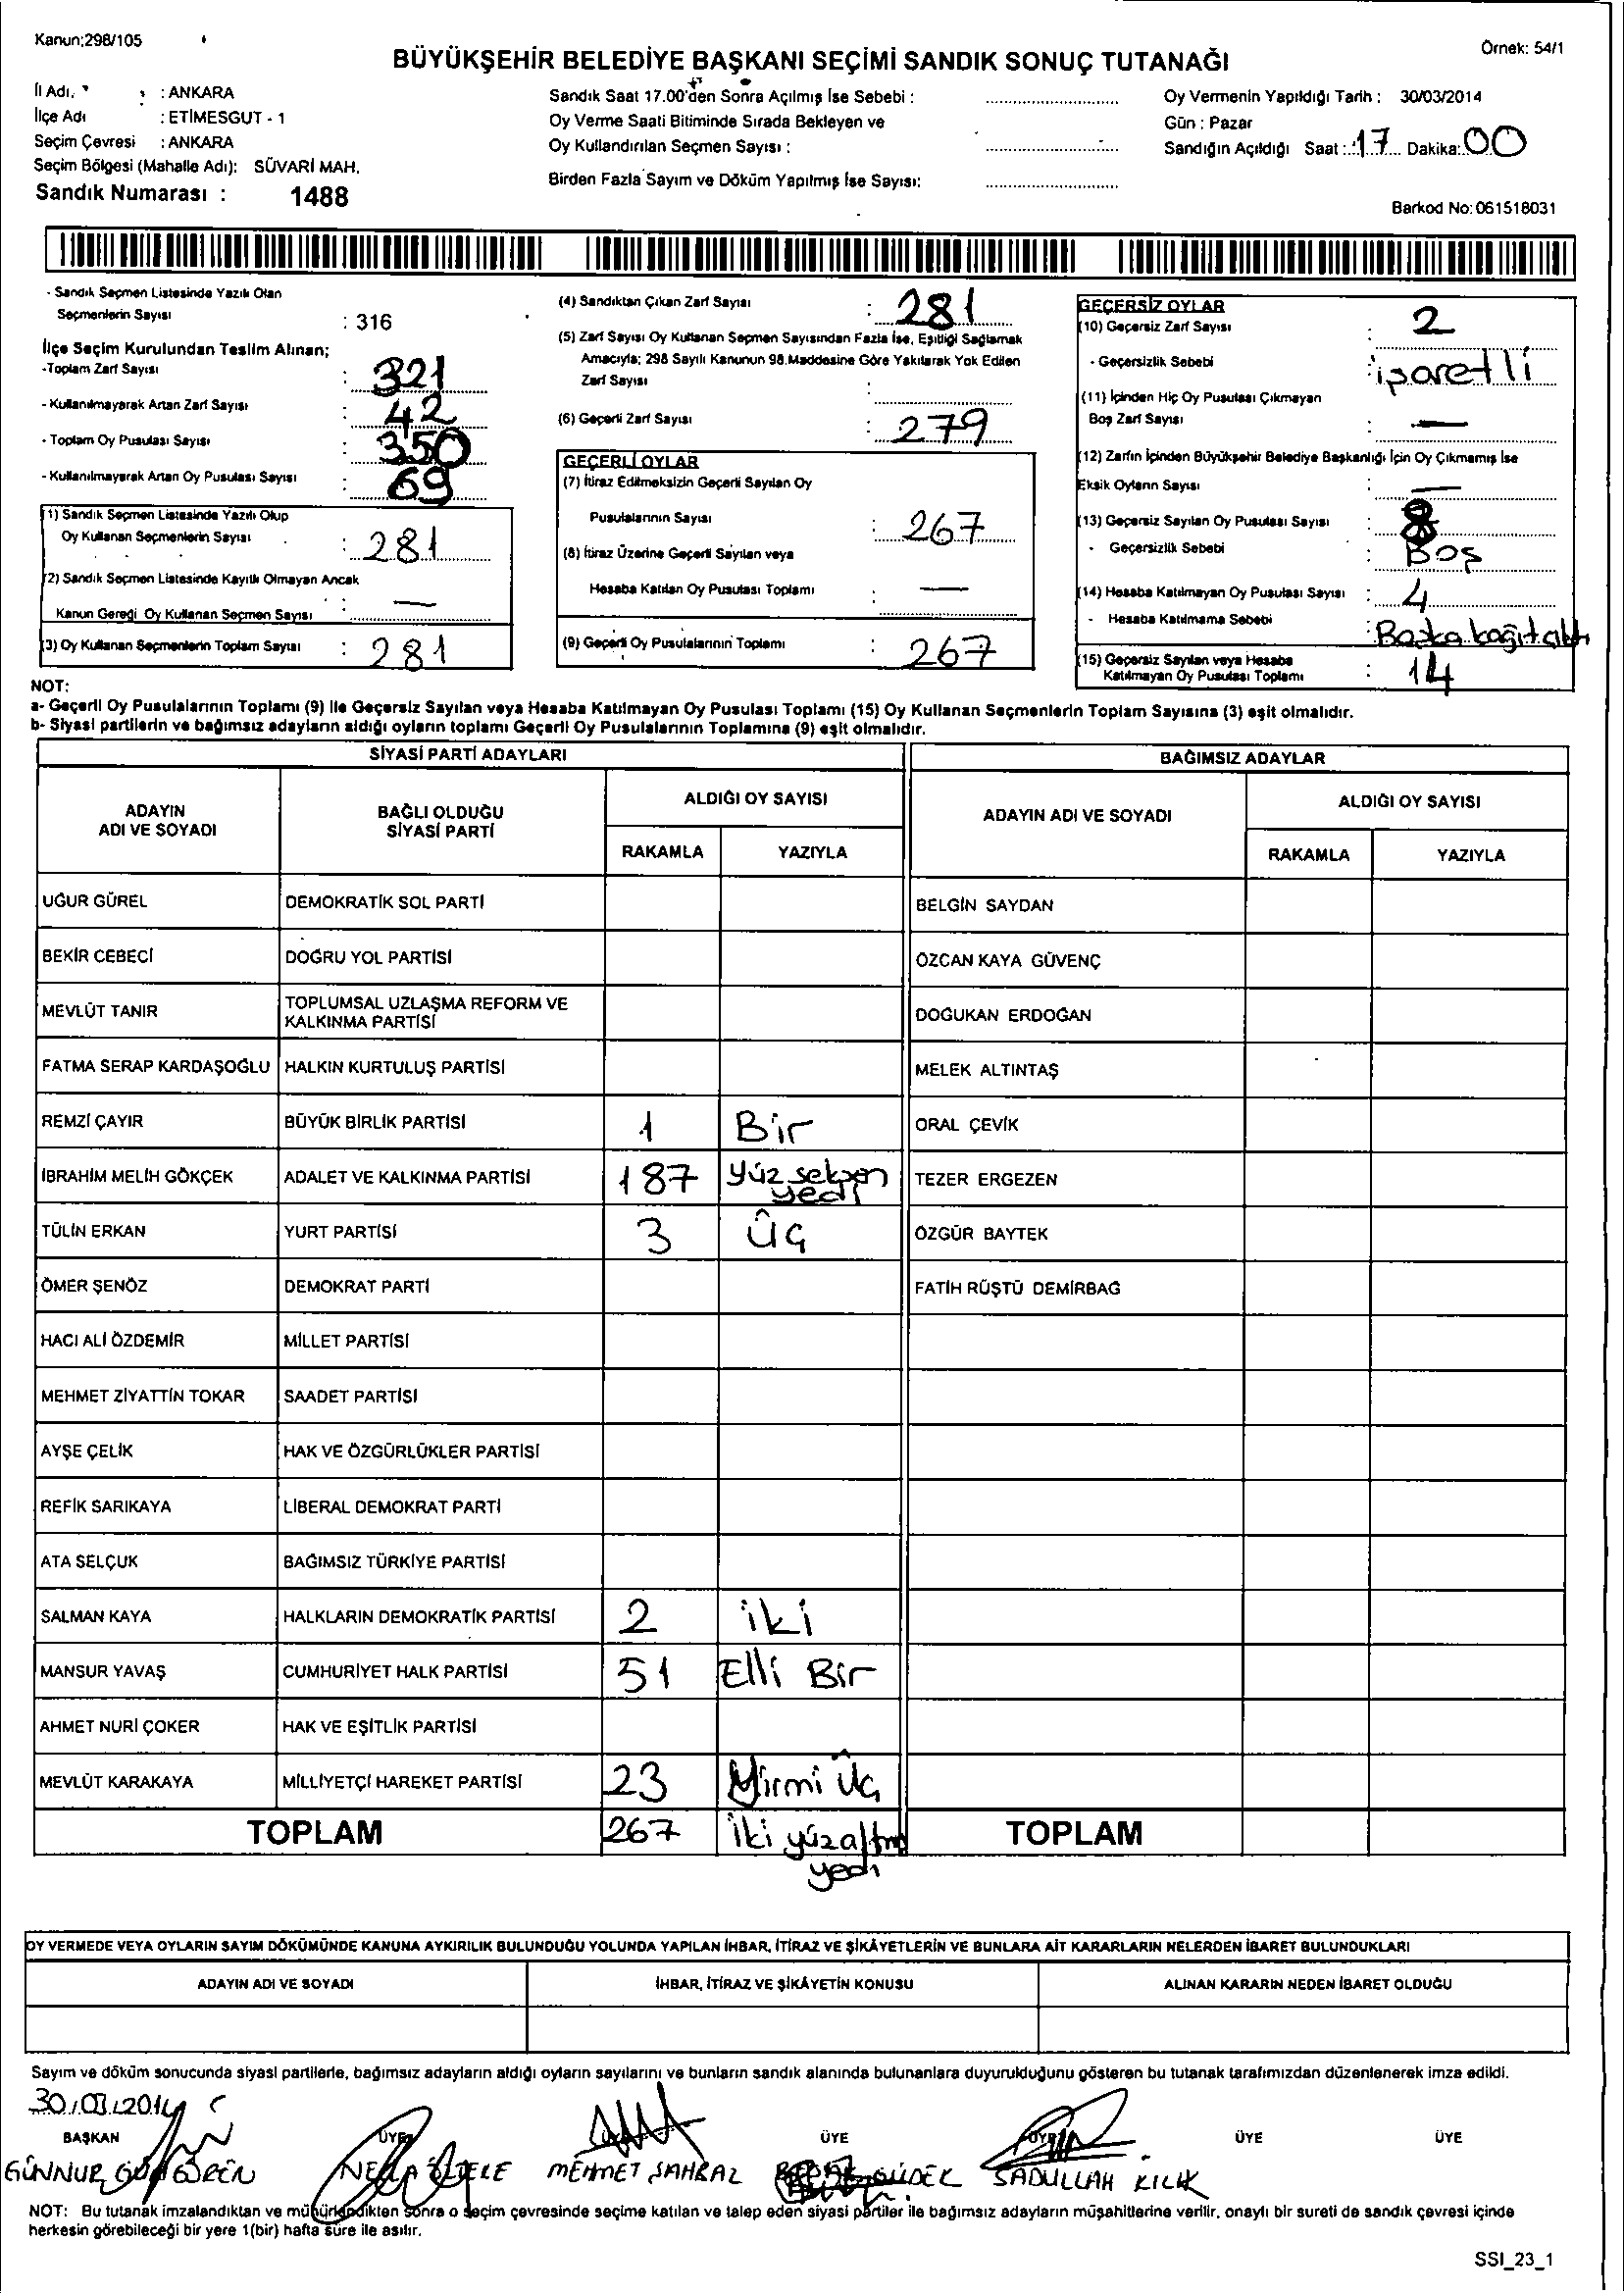 Kanun:298/105
Örnek: 54/1
BÜYÜKŞEHİR BELEDİYE BAŞKANI SEÇİMİ SANDIK SONUÇ TUTANAĞI
İl Adı. : ANKARA
İlçe Adı : ETİMESGUT - 1
Seçim Çevresi : ANKARA
Seçim Bölgesi (Mahalle Adı): SÜVARİ MAH.
Sandık Numarası : 1488
Sandık Saat 17.00'den Sonra Açılmış İse Sebebi :
Oy Verme Saati Bitiminde Sırada Bekleyen ve
Oy Kullandırılan Seçmen Sayısı :
Birden Fazla Sayım ve Döküm Yapılmış İse Sayısı:
Oy Vermenin Yapıldığı Tarih : 30/03/2014
Gün : Pazar
Sandığın Açıldığı Saat : 17 Dakika: 00
Barkod No: 061518031
- Sandık Seçmen Listesinde Yazılı Olan
Seçmenlerin Sayısı : 316
İlçe Seçim Kurulundan Teslim Alınan;
-Toplam Zarf Sayısı : 321
- Kullanılmayarak Artan Zarf Sayısı : 42
- Toplam Oy Pusulası Sayısı : 350
- Kullanılmayarak Artan Oy Pusulası Sayısı : 69
(1) Sandık Seçmen Listesinde Yazılı Olup
Oy Kullanan Seçmenlerin Sayısı : 281
(2) Sandık Seçmen Listesinde Kayıtlı Olmayan Ancak
Kanun Gereği Oy Kullanan Seçmen Sayısı : —
(3) Oy Kullanan Seçmenlerin Toplam Sayısı : 281
(4) Sandıktan Çıkan Zarf Sayısı : 281
(5) Zarf Sayısı Oy Kullanan Seçmen Sayısından Fazla İse, Eşitliği Sağlamak
Amacıyla; 298 Sayılı Kanunun 98.Maddesine Göre Yakılarak Yok Edilen
Zarf Sayısı :
(6) Geçerli Zarf Sayısı : 279
GEÇERLİ OYLAR
(7) İtiraz Edilmeksizin Geçerli Sayılan Oy
Pusulalarının Sayısı : 267
(8) İtiraz Üzerine Geçerli Sayılan veya
Hesaba Katılan Oy Pusulası Toplamı : —
(9) Geçerli Oy Pusulalarının Toplamı : 267
GEÇERSİZ OYLAR
(10) Geçersiz Zarf Sayısı : 2
- Geçersizlik Sebebi : işaretli
(11) İçinden Hiç Oy Pusulası Çıkmayan
Boş Zarf Sayısı : —
(12) Zarfın İçinden Büyükşehir Belediye Başkanlığı İçin Oy Çıkmamış İse
Eksik Oyların Sayısı : —
(13) Geçersiz Sayılan Oy Pusulası Sayısı : 8
- Geçersizlik Sebebi Boş
(14) Hesaba Katılmayan Oy Pusulası Sayısı : 4
- Hesaba Katılmama Sebebi : Başka kağıt çıktı
(15) Geçersiz Sayılan veya Hesaba
Katılmayan Oy Pusulası Toplamı : 14
NOT:
a- Geçerli Oy Pusulalarının Toplamı (9) ile Geçersiz Sayılan veya Hesaba Katılmayan Oy Pusulası Toplamı (15) Oy Kullanan Seçmenlerin Toplam Sayısına (3) eşit olmalıdır.
b- Siyasi partilerin ve bağımsız adayların aldığı oyların toplamı Geçerli Oy Pusulalarının Toplamına (9) eşit olmalıdır.
SİYASİ PARTİ ADAYLARI BAĞIMSIZ ADAYLAR
ADAYIN ADI VE SOYADI BAĞLI OLDUĞU SİYASİ PARTİ ALDIĞI OY SAYISI ADAYIN ADI VE SOYADI ALDIĞI OY SAYISI
RAKAMLA YAZIYLA RAKAMLA YAZIYLA
UĞUR GÜREL DEMOKRATİK SOL PARTİ BELGİN SAYDAN
BEKİR CEBECİ DOĞRU YOL PARTİSİ ÖZCAN KAYA GÜVENÇ
MEVLÜT TANIR TOPLUMSAL UZLAŞMA REFORM VE KALKINMA PARTİSİ DOĞUKAN ERDOĞAN
FATMA SERAP KARDAŞOĞLU HALKIN KURTULUŞ PARTİSİ MELEK ALTINTAŞ
REMZİ ÇAYIR BÜYÜK BİRLİK PARTİSİ 1 Bir ORAL ÇEVİK
İBRAHİM MELİH GÖKÇEK ADALET VE KALKINMA PARTİSİ 187 Yüz seksen yedi TEZER ERGEZEN
TÜLİN ERKAN YURT PARTİSİ 3 Üç ÖZGÜR BAYTEK
ÖMER ŞENÖZ DEMOKRAT PARTİ FATİH RÜŞTÜ DEMİRBAĞ
HACI ALİ ÖZDEMİR MİLLET PARTİSİ
MEHMET ZİYATTİN TOKAR SAADET PARTİSİ
AYŞE ÇELİK HAK VE ÖZGÜRLÜKLER PARTİSİ
REFİK SARIKAYA LİBERAL DEMOKRAT PARTİ
ATA SELÇUK BAĞIMSIZ TÜRKİYE PARTİSİ
SALMAN KAYA HALKLARIN DEMOKRATİK PARTİSİ 2 iki
MANSUR YAVAŞ CUMHURİYET HALK PARTİSİ 51 Elli Bir
AHMET NURİ ÇOKER HAK VE EŞİTLİK PARTİSİ
MEVLÜT KARAKAYA MİLLİYETÇİ HAREKET PARTİSİ 23 Yirmi Üç
TOPLAM 267 iki yüz altmış yedi TOPLAM
OY VERMEDE VEYA OYLARIN SAYIM DÖKÜMÜNDE KANUNA AYKIRILIK BULUNDUĞU YOLUNDA YAPILAN İHBAR, İTİRAZ VE ŞİKÂYETLERİN VE BUNLARA AİT KARARLARIN NELERDEN İBARET BULUNDUKLARI
ADAYIN ADI VE SOYADI İHBAR, İTİRAZ VE ŞİKÂYETİN KONUSU ALINAN KARARIN NEDEN İBARET OLDUĞU
Sayım ve döküm sonucunda siyasi partilerle, bağımsız adayların aldığı oyların sayılarını ve bunların sandık alanında bulunanlara duyurulduğunu gösteren bu tutanak tarafımızdan düzenlenerek imza edildi.
30.03.2014
BAŞKAN ÜYE ÜYE ÜYE ÜYE ÜYE ÜYE
GÜNNUR MEHMET SADULLAH KILIK
NOT: Bu tutanak imzalandıktan ve mühürlendikten sonra o seçim çevresinde seçime katılan ve talep eden siyasi partiler ile bağımsız adayların müşahitlerine verilir, onaylı bir sureti de sandık çevresi içinde
herkesin görebileceği bir yere 1(bir) hafta süre ile asılır.
SSI_23_1